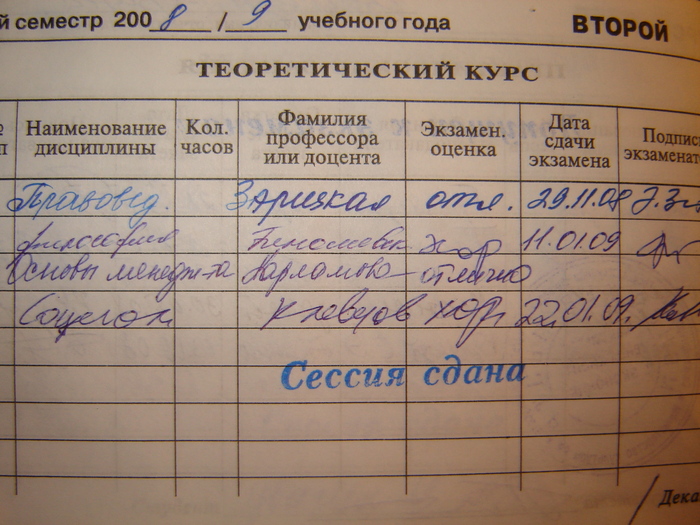 й семестр 2008/9 учебного года ВТОРОЙ
ТЕОРЕТИЧЕСКИЙ КУРС
Наименование дисциплины Кол. часов Фамилия профессора или доцента Экзамен. оценка Дата сдачи экзамена Подпис экзаменат
Правовед. Зарицкая отл. 29.11.08
философия хор 11.01.09
Основы менедж-та Варламова отлично
хор 22.01.09.
Сессия сдана
Дека